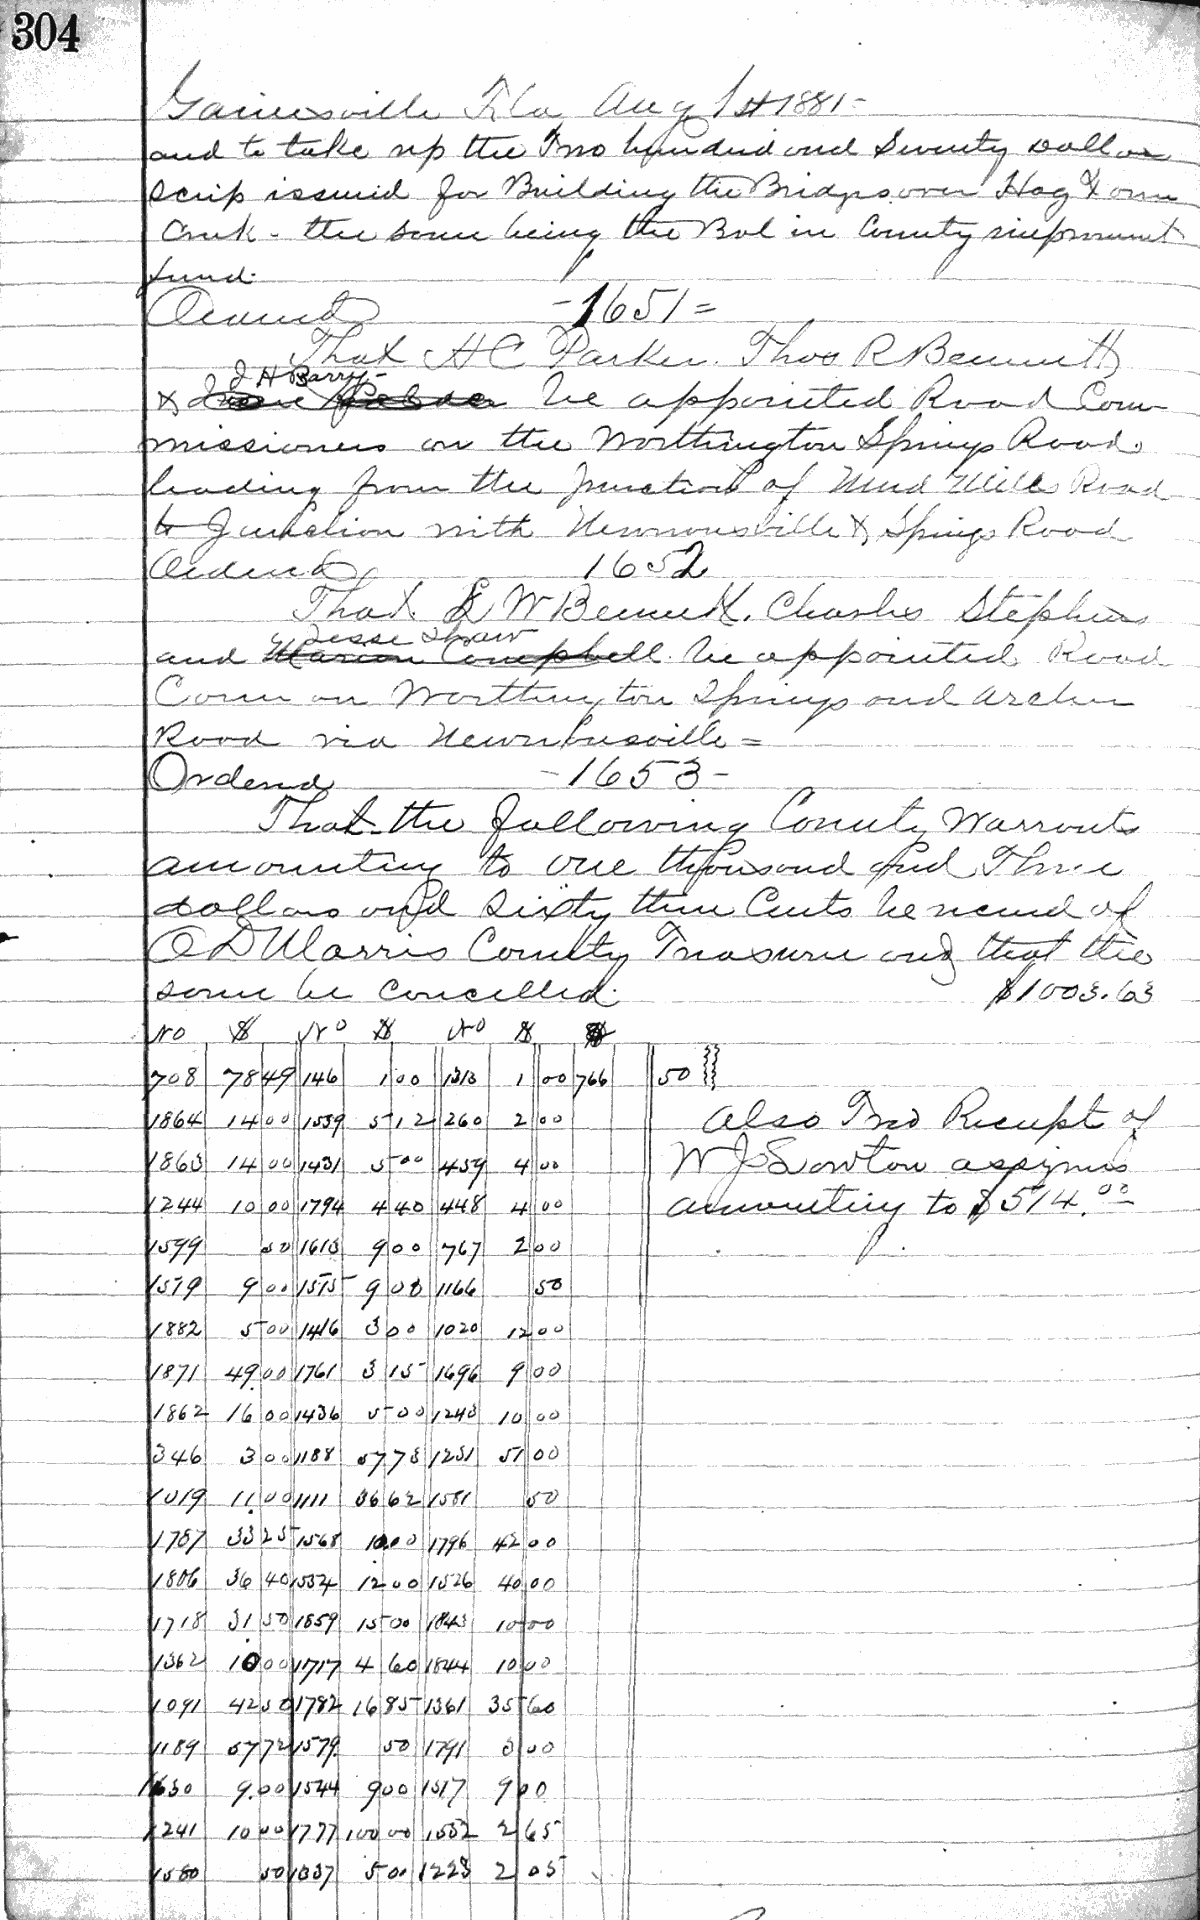 304
Gainesville Fla Aug 1st 1881-
and to take up the Two hundred and Seventy Dollar
Scrip issued for Building the Bridges over Hog Town
Creek - the same being the Bal in County improvement
fund.
Ordered -1651=
That H C Parker. Thos R Bennett
J H Barry-
& be appointed Road Com
missioners on the Worthington Springs Road
leading from the Junction of Mud Mills Road
to Junction with Newnansville & Springs Road
Ordered 1652
That E W Bennett. Charles Stephens
Jesse Shaw
and Marion Campbell be appointed Road
Com on Worthington Springs and Archer
Road via Newnansville =
Ordered -1653-
That the following County Warrants
amounting to one thousand and Three
dollars and Sixty three Cents be received of
O D Marris County Treasurer and that the
same be cancelled. $1003.63
No $ No $ No $
708 78 49 146 1 00 1313 1 00 766 50
1864 14 00 1559 5 12 260 2 00
Also Two Receipt of
1863 14 00 1431 5 00 459 4 00
W J Lowton assignee
1244 10 00 1794 4 40 448 4 00
amounting to $514.00
1599 50 1613 9 00 767 2 00
1519 9 00 1575 9 00 1166 50
1882 5 00 1416 3 00 1020 12 00
1871 49 00 1761 3 15 1696 9 00
1862 16 00 1436 5 00 1243 10 00
346 3 00 1188 57 73 1251 51 00
1019 11 00 1111 36 62 1581 50
1787 33 25 1568 10 00 1796 42 00
1806 36 40 1534 12 00 1526 40 00
1718 31 50 1859 15 00 1843 10 00
1362 10 00 1717 4 60 1844 10 00
1091 42 50 1782 16 85 1361 35 60
1189 57 72 1579 50 1791 3 00
1630 9 00 1544 9 00 1517 9 00
1241 10 00 1777 100 00 1552 2 65
1580 50 1337 5 00 1223 2 05